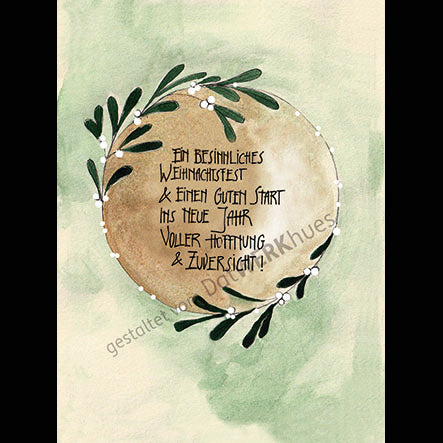 EIN BESINNLICHES
WEIHNACHTSFEST
& EINEN GUTEN START
INS NEUE JAHR
VOLLER HOFFNUNG
& ZUVERSICHT!
gestaltet von DatWERKhues